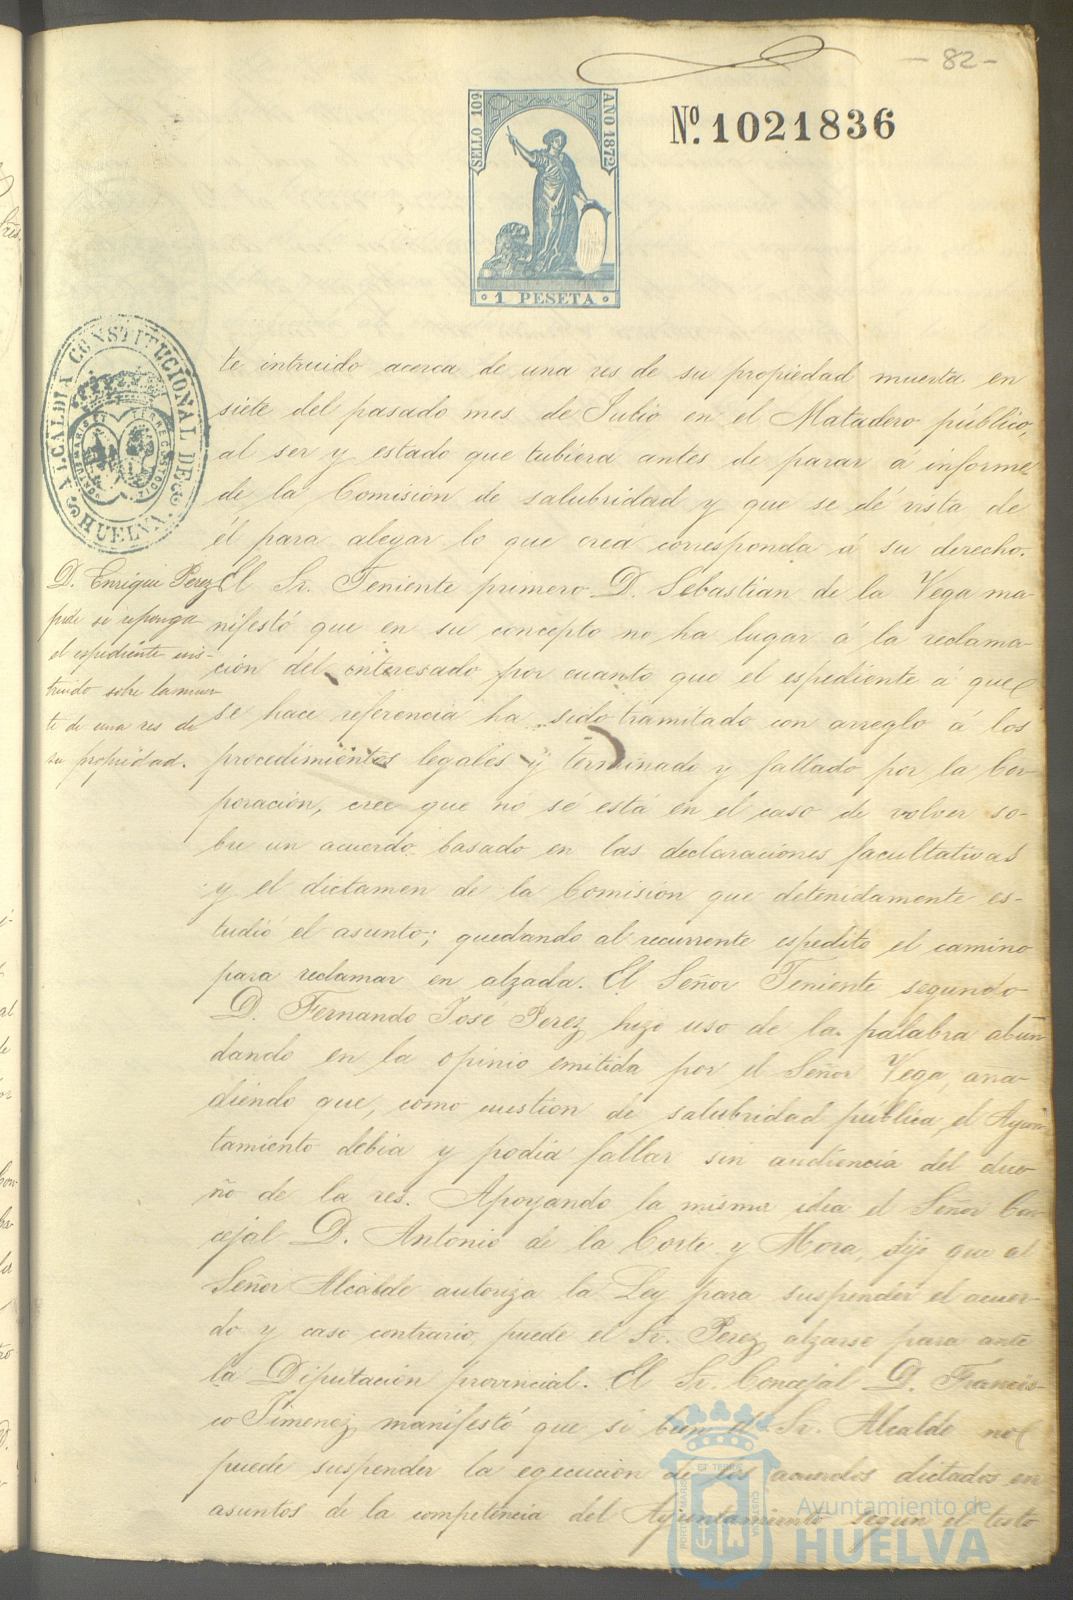 - 82 -
SELLO 10º
AÑO 1872
Nº. 1021836
1 PESETA
ALCALDIA CONSTITUCIONAL DE HUELVA
te intruido acerca de una res de su propiedad muerta en
siete del pasado mes de Julio en el Matadero público,
al ser y estado que tubiera antes de parar á informe
de la Comision de salubridad y que se dé vista de
él para alegar lo que crea corresponda á su derecho.
D. Enrique Perez
pide se reponga
el espediente ins-
truido sobre la muer-
te de una res de
su propiedad.
El Sr. Teniente primero D. Sebastian de la Vega ma-
nifestó que en su concepto no ha lugar á la reclama-
ción del interesado por cuanto que el espediente á que
se hace referencia ha sido tramitado con arreglo á los
procedimientos legales y terminado y fallado por la Cor-
poración, cree que no sé está en el caso de volver so-
bre un acuerdo basado en las declaraciones facultativas
y el dictamen de la Comision que detenidamente es-
tudió el asunto; quedando al recurrente espedito el camino
para reclamar en alzada. El Señor Teniente segundo
D. Fernando Jose Perez hizo uso de la palabra abun
dando en la opinio emitida por el Señor Vega, aña-
diendo que, como cuestion de salubridad pública el Ayun
tamiento debia y podia fallar sin audiencia del due-
ño de la res. Apoyando la misma idea el Señor Con-
cejal D. Antonio de la Corte y Mora, dijo que al
Señor Alcalde autoriza la Ley para suspender el acuer-
do y caso contrario puede el Sr. Perez alzarse para ante
la Diputación provincial. El Sr. Concejal D. Francis-
co Jimenez manifestó que si bien el Sr. Alcalde no
puede suspender la egecucion de los acuerdos dictados en
asuntos de la competencia del Ayuntamiento segun el testo
Ayuntamiento de
HUELVA